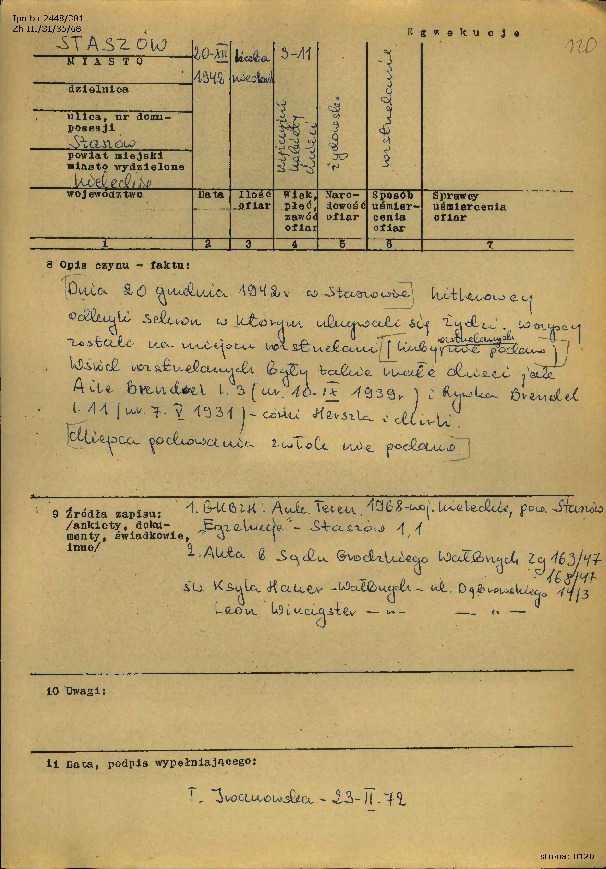 Ipn bu 2448/
Zh II./31/35/68
Egzekucje
120
STASZÓW
MIASTO
dzielnica
ulica, nr domu-
posesji
Staszów
powiat miejski
miasto wydzielone
Kieleckie
województwo
20-XII
1942
liczba
9-11
mężczyźni
kobiety
dzieci
żydowska
rozstrzelanie
Data
Ilość
ofiar
Wiek,
płeć,
zawód
ofiar
Naro-
dowość
ofiar
Sposób
uśmier-
cenia
ofiar
Sprawcy
uśmiercenia
ofiar
1 2 3 4 5 6 7
8 Opis czynu - faktu:
[Dnia 20 grudnia 1942 r w Staszowie] hitlerowcy
odkryli schron w którym ukrywali się Żydzi. wszyscy
rozstrzelanych
zostali na miejscu rozstrzelani [liczby nie podano]
Wśród rozstrzelanych były także małe dzieci jak
Brendel l. 3 (ur. 10-IX 1939 r) i Rywka Brendel
l. 11 (ur. 7-V 1931) - córki Herszka i Mirli.
[Miejsca pochowania zwłok nie podano]
9 Źródła zapisu:
/ankiety, doku-
menty, świadkowie,
inne/
1. GKBZH: Ank. Teren. 1968 - woj. kieleckie, pow. Staszów
"Egzekucje" - Staszów 1,1
2. Akta Sądu Grodzkiego Wałbrzych Zg 163/47
168/47
św. Ksyla Haner - Wałbrzych - ul. Dąbrowskiego 14/3
Leon - " - - " -
10 Uwagi:
11 Data, podpis wypełniającego:
T. Iwanowska - 23-II.72
strona: 0120